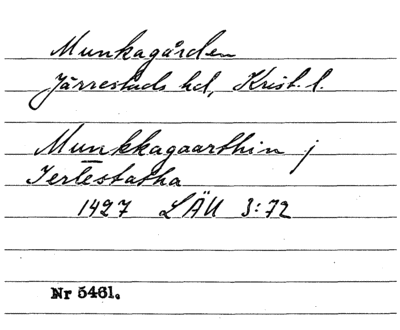 Munkagården
Järrestads hd, Krist. l.
Munkkagaarthin j
Jertestatha
1427 LÄU 3:72
Nr 5461.